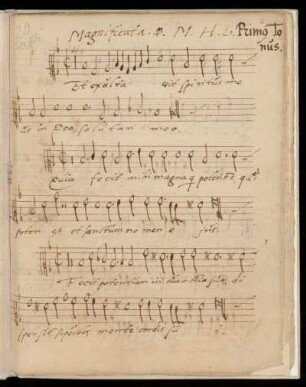 Magnificata. P. M. H. L. Primo To
nus.
Et exulta vit spiritus me
us in Deo salutari meo.
Quia fecit mihi magna q potens q
potens est et sanctum nomen e ius.
Fecit potentiam in brachio suo, di
spersit superbos mente cordis su i.